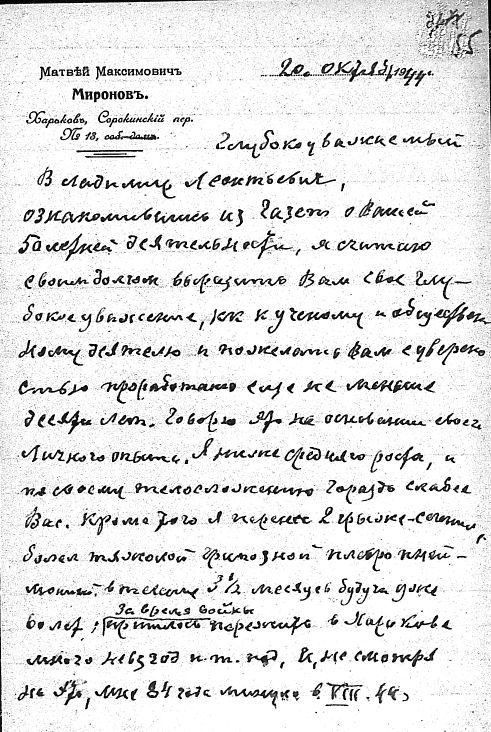 55
Матвѣй Максимовичъ
Мироновъ.
Харьковъ, Сорокинскій пер.
№ 13, соб. домъ.
20. окт. 1944 г.
Глубокоуважаемый
Владимир Леонтьевич,
ознакомившись из газет о Вашей
деятельности, я считаю
своим долгом выразить Вам свое глу-
бокое уважение, как к ученому и обществен
ному деятелю и пожелать Вам с уверено
стью проработать еще не меньше
десяти лет. Говорю это на основании своего
личного опыта. Я ниже среднего роста, и
по своему телосложению гораздо слабее
Вас. Кроме того я перенес 2 грыже-сечения,
болел тяжолой гриппозной плевропней-
монией в течение 3½ месяцев будучи уже
За время войны
пришлось пережить в Харькове
много невзгод и т. под. И, не смотря
на это, мне 84 года минуло в VIII. 44,